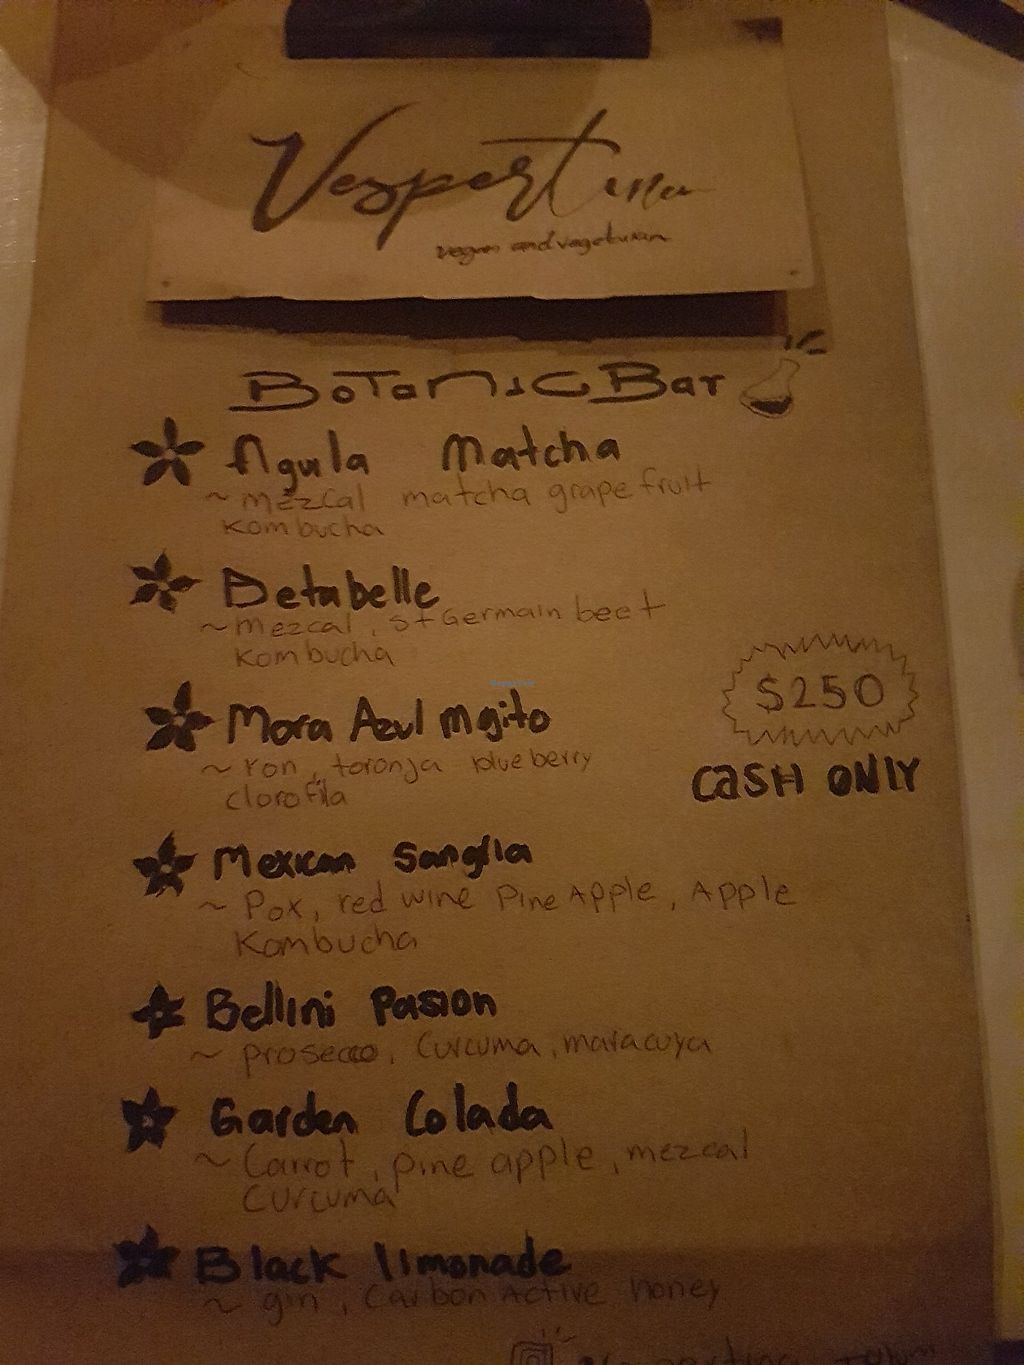 Vespertina
vegan and vegetarian
Botanic Bar
Agula Matcha
~ mezcal matcha grapefruit
Kombucha
Betabelle
~ mezcal, St Germain beet
Kombucha
$250
Mora Azul Mojito
~ ron, toronja blueberry
clorofila
CASH ONLY
Mexican Sangria
~ Pox, red wine Pine Apple, Apple
Kombucha
Bellini Pasion
~ prosecco, Curcuma, maracuya
Garden Colada
~ Carrot, pine apple, mezcal
Curcuma
Black limonade
~ gin, Carbon Active honey